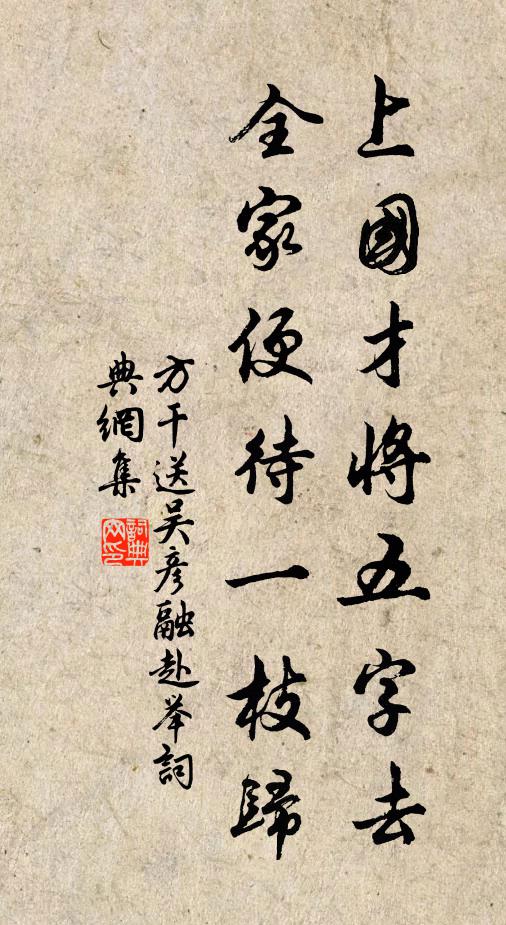 上國才將五字去
全家便待一枝歸
方干送吴彦融赴举詞
典網集
詞典網印